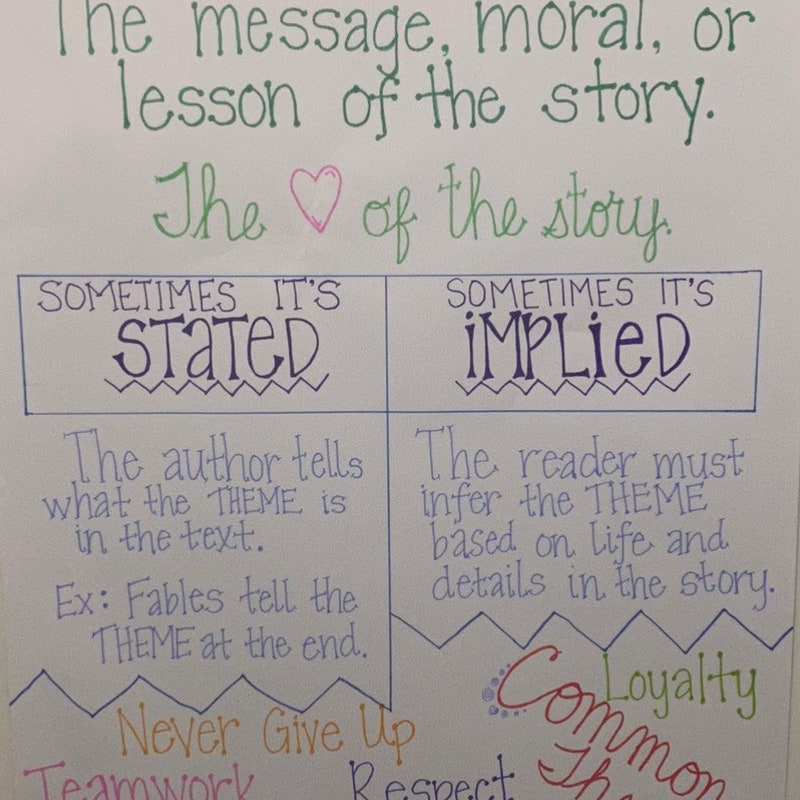 The message, moral, or
lesson of the story.
The ♡ of the story.
SOMETIMES IT'S
STATED
The author tells
what the THEME is
in the text.
Ex: Fables tell the
THEME at the end.
SOMETIMES IT'S
IMPLIED
The reader must
infer the THEME
based on life and
details in the story.
Never Give Up
Teamwork
Respect
Loyalty
Common